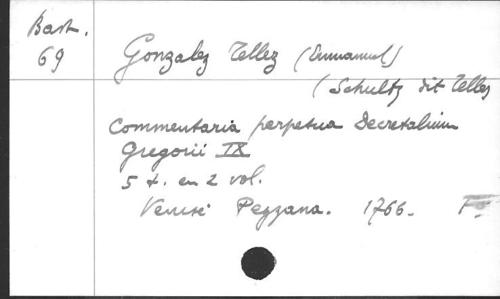 Bast.
69
Gonzalez Tellez (Emmanuel)
(Schultz dit Tellez
Commentaria perpetua Decretalium
Gregorii IX
5 t. en 2 vol.
Venise Pezzana. 1766. Fo